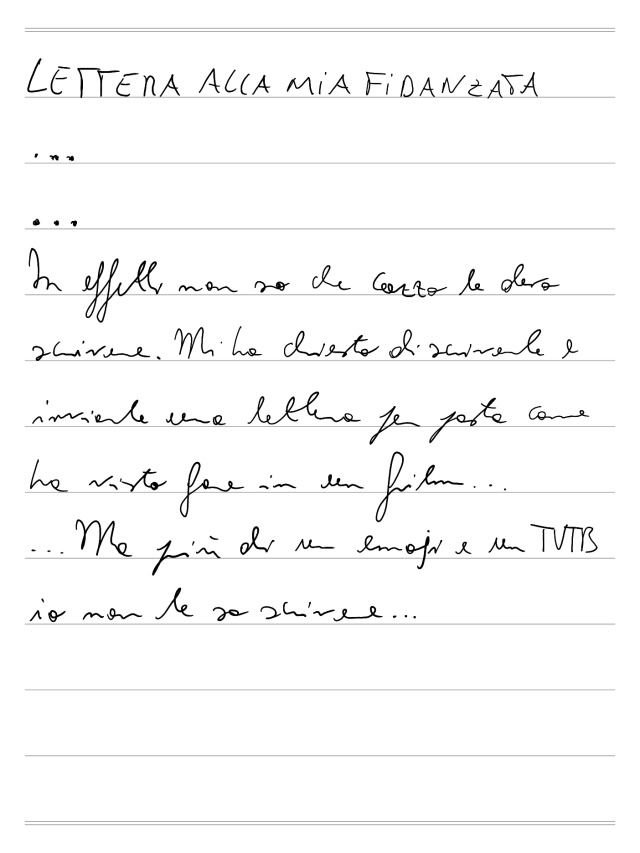 LETTERA ALLA MIA FIDANZATA
...
...
In effetti non so che cazzo le devo
scrivere. Mi ha chiesto di scriverle e
inviarle una lettera per posta come
ha visto fare in un film...
...Ma più di un emoji e un TVTB
io non le so scrivere...